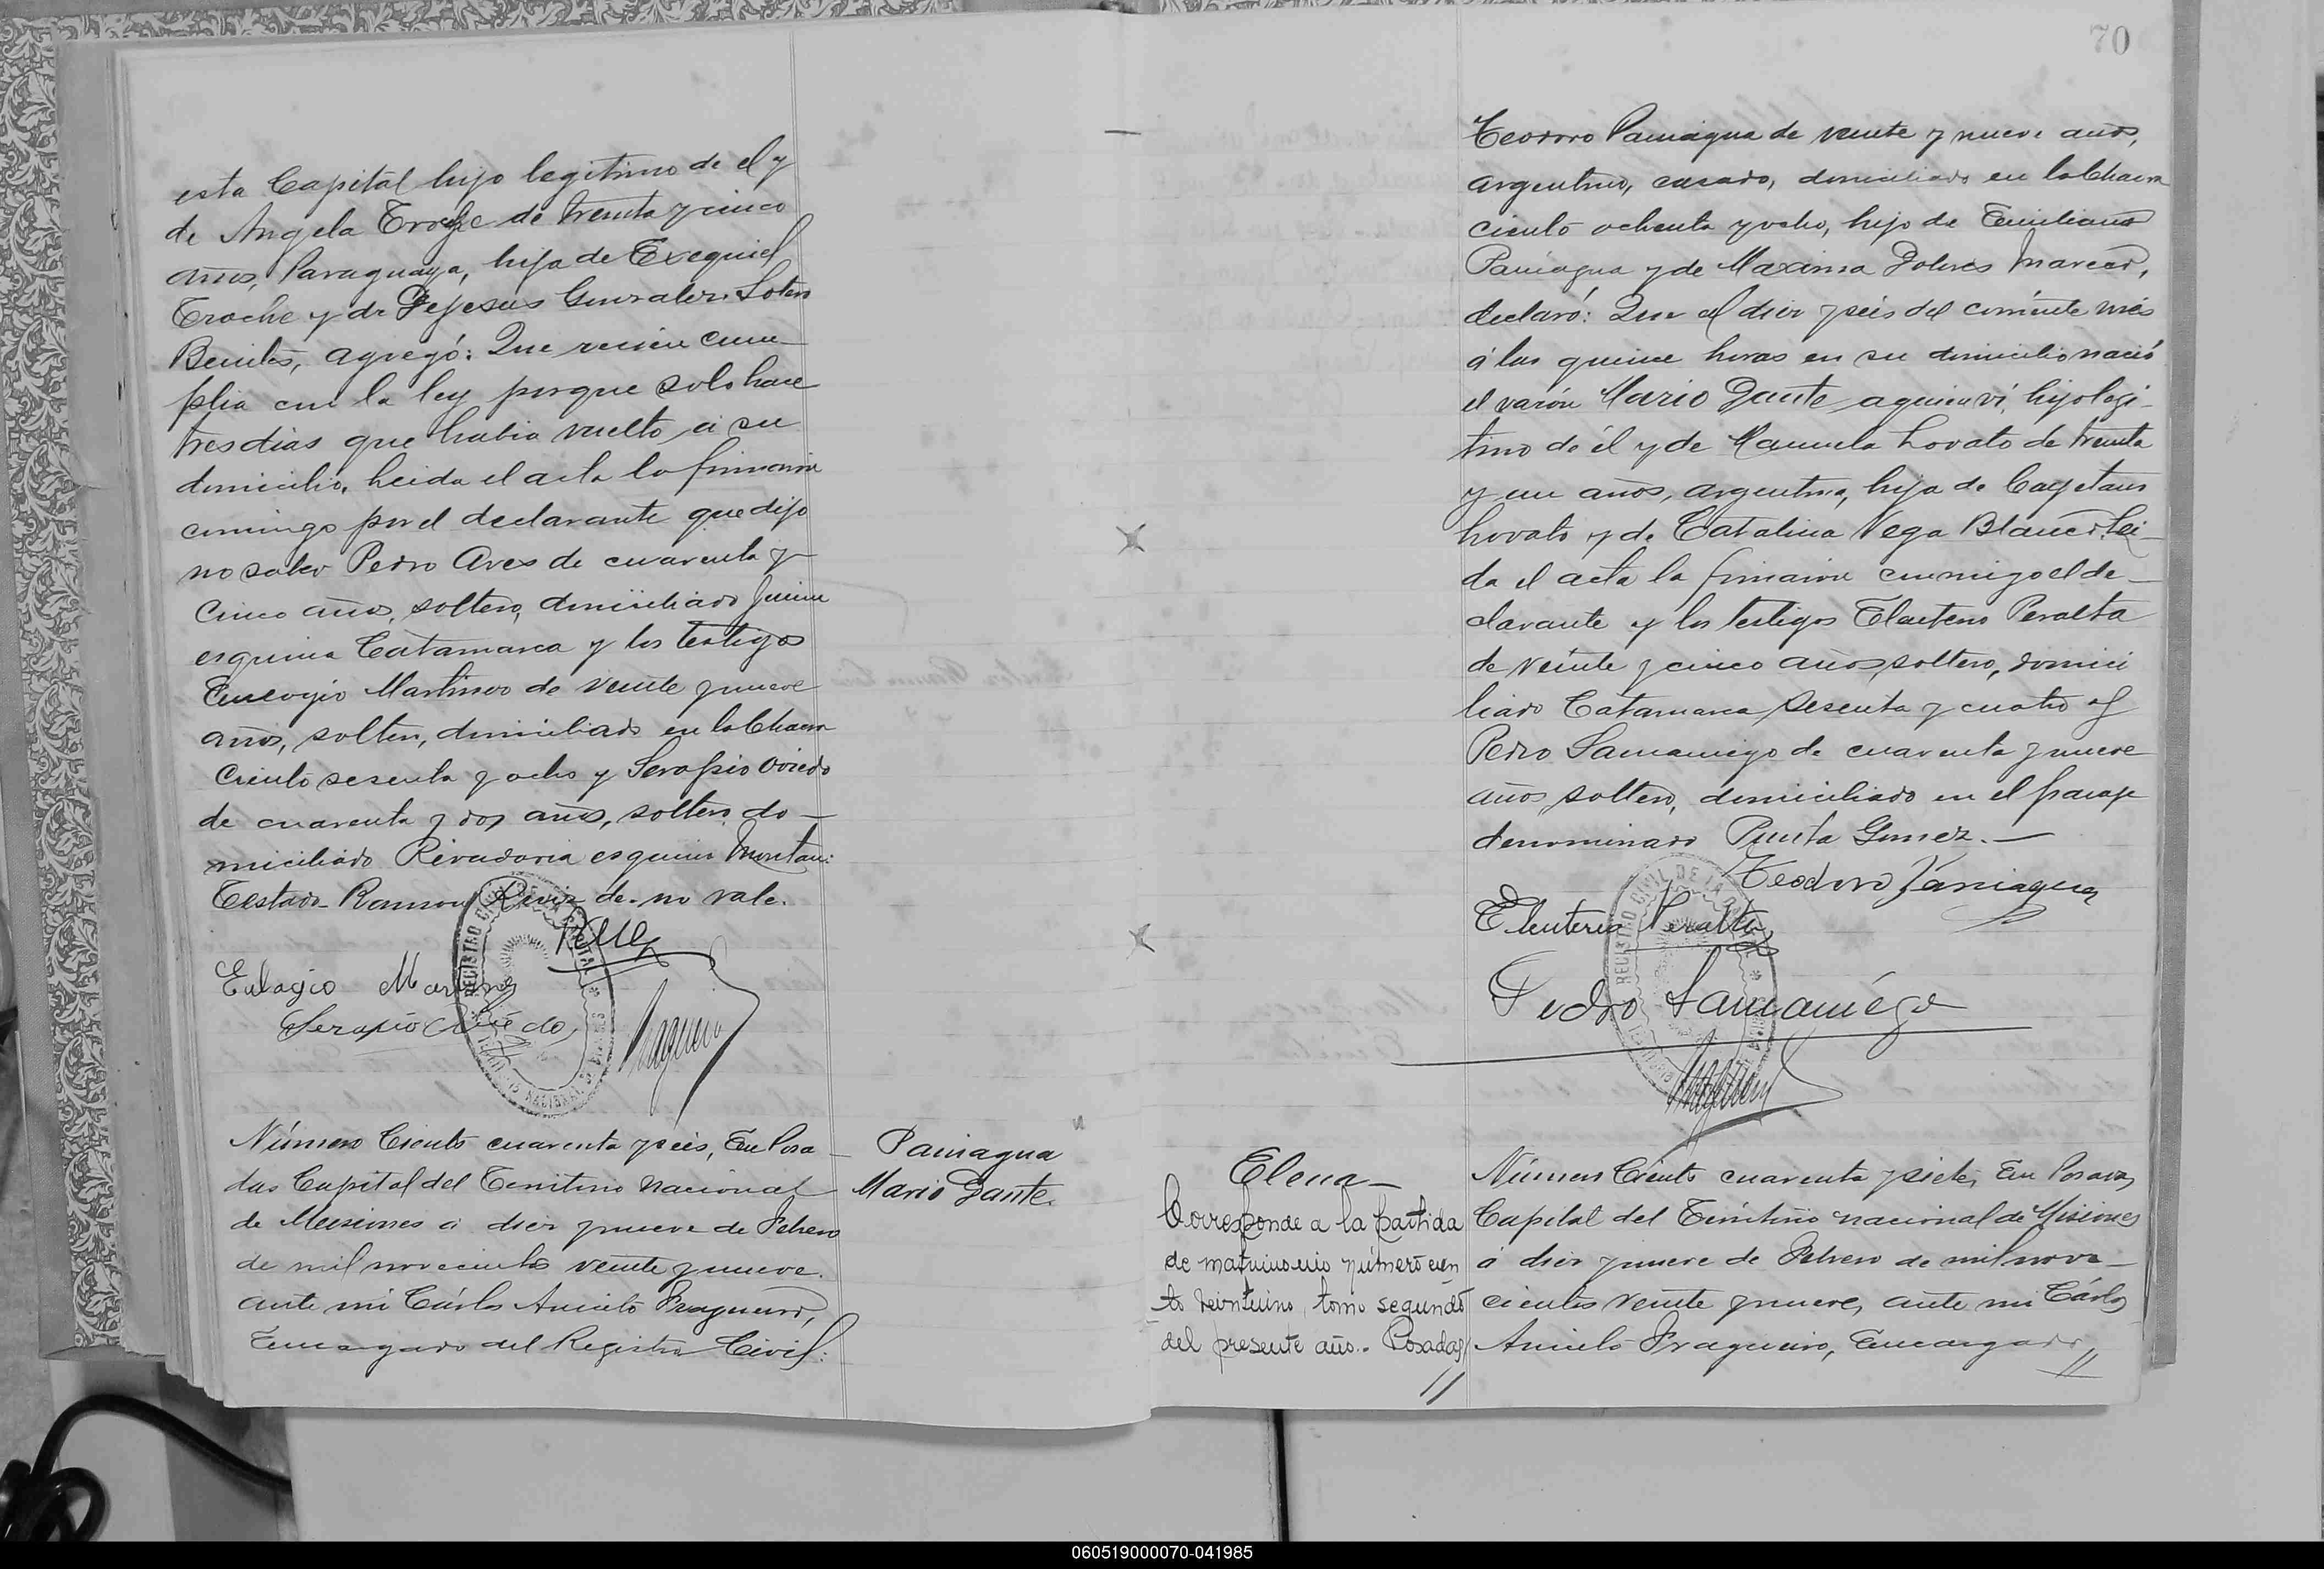 esta Capital hijo legitimo de el y
de Angela Troche de treinta y cinco
años, Paraguaya, hija de Exequiel
Troche y de Dejesus Gonzalez. Sotero
Benites, agregó: Que recien cum-
plia con la ley porque solo hace
tres dias que habia vuelto a su
domicilio. Leida el acta la firmaron
conmigo por el declarante que dijo
no saber Pedro Aves de cuarenta y
cinco años, soltero, domiciliado Junin
esquina Catamarca y los testigos
Eulogio Martinez de veinte y nueve
años, soltero, domiciliado en la Chacra
Ciento sesenta y ocho y Serapio Oviedo
de cuarenta y dos años, soltero do-
miciliado Rivadavia esquina
Testado-Ramon de-no vale.
Eulogio Martinez
Serapio Oviedo
REGISTRO CIVIL DE LA CAPITAL
Número Ciento cuarenta y seis, En Posa-
das Capital del Territorio Nacional
de Misiones a diez y nueve de Febrero
de mil novecientos veinte y nueve.
ante mi Cárlos Aniceto Fragueiro,
Encargado del Registro Civil:
Paniagua
Mario Dante.
70
Teodoro Paniagua de veinte y nueve años,
argentino, casado, domiciliado en la Chacra
ciento ochenta y ocho, hijo de Emiliano
Paniagua y de Maxima Dolores
declaró: Que el diez y seis del corriente més
á las quince horas en su domicilio nació
el varón Mario Dante a quien ví, hijo legi-
timo de él y de Manuela Lovato de treinta
y un años, argentina, hija de Cayetano
Lovato y de Catalina Vega Blanco. Lei-
da el acta la firmaron conmigo el de-
clarante y los testigos Eleuterio Peralta
de veinte y cinco años, soltero, domici
liado Catamarca sesenta y cuatro y
Pedro Samaniego de cuarenta y nueve
años soltero, domiciliado en el paraje
denominado Punta Gomez.-
Teodoro Paniagua
Eleuterio Peralta
Pedro Samaniégo
REGISTRO CIVIL DE LA CAPITAL
Elena-
Corresponde a la partida
de matrimonio número cien
to veintiuno, tomo segundo
del presente año.- Posadas
//
Número Ciento cuarenta y siete, En Posadas
Capital del Territorio nacional de Misiones
á diez y nueve de Febrero de mil nove-
cientos veinte y nueve, ante mi Cárlos
Aniceto Fragueiro, Encargado
//
060519000070-041985